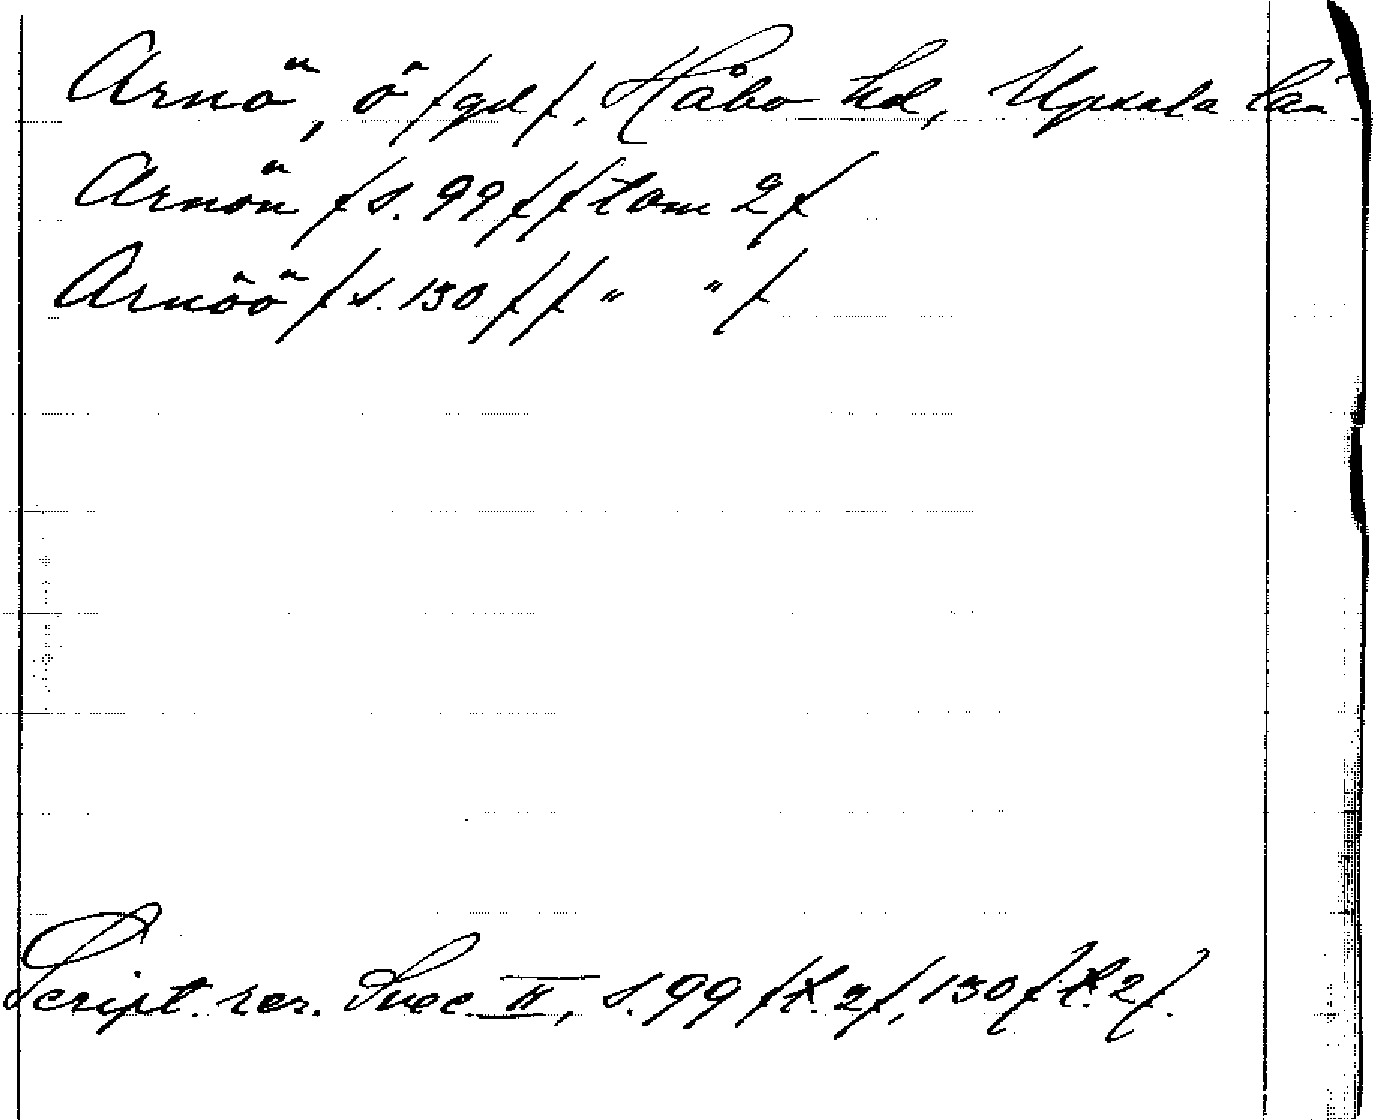 Arnö, ö /gd/, Håbo hd, Upsala län
Arnön /s. 99/ /tom 2/
Arnöö /s. 130/ / " " /
Script. rer. Svec. II, s. 99 /t. 2/, 130 /t. 2/.